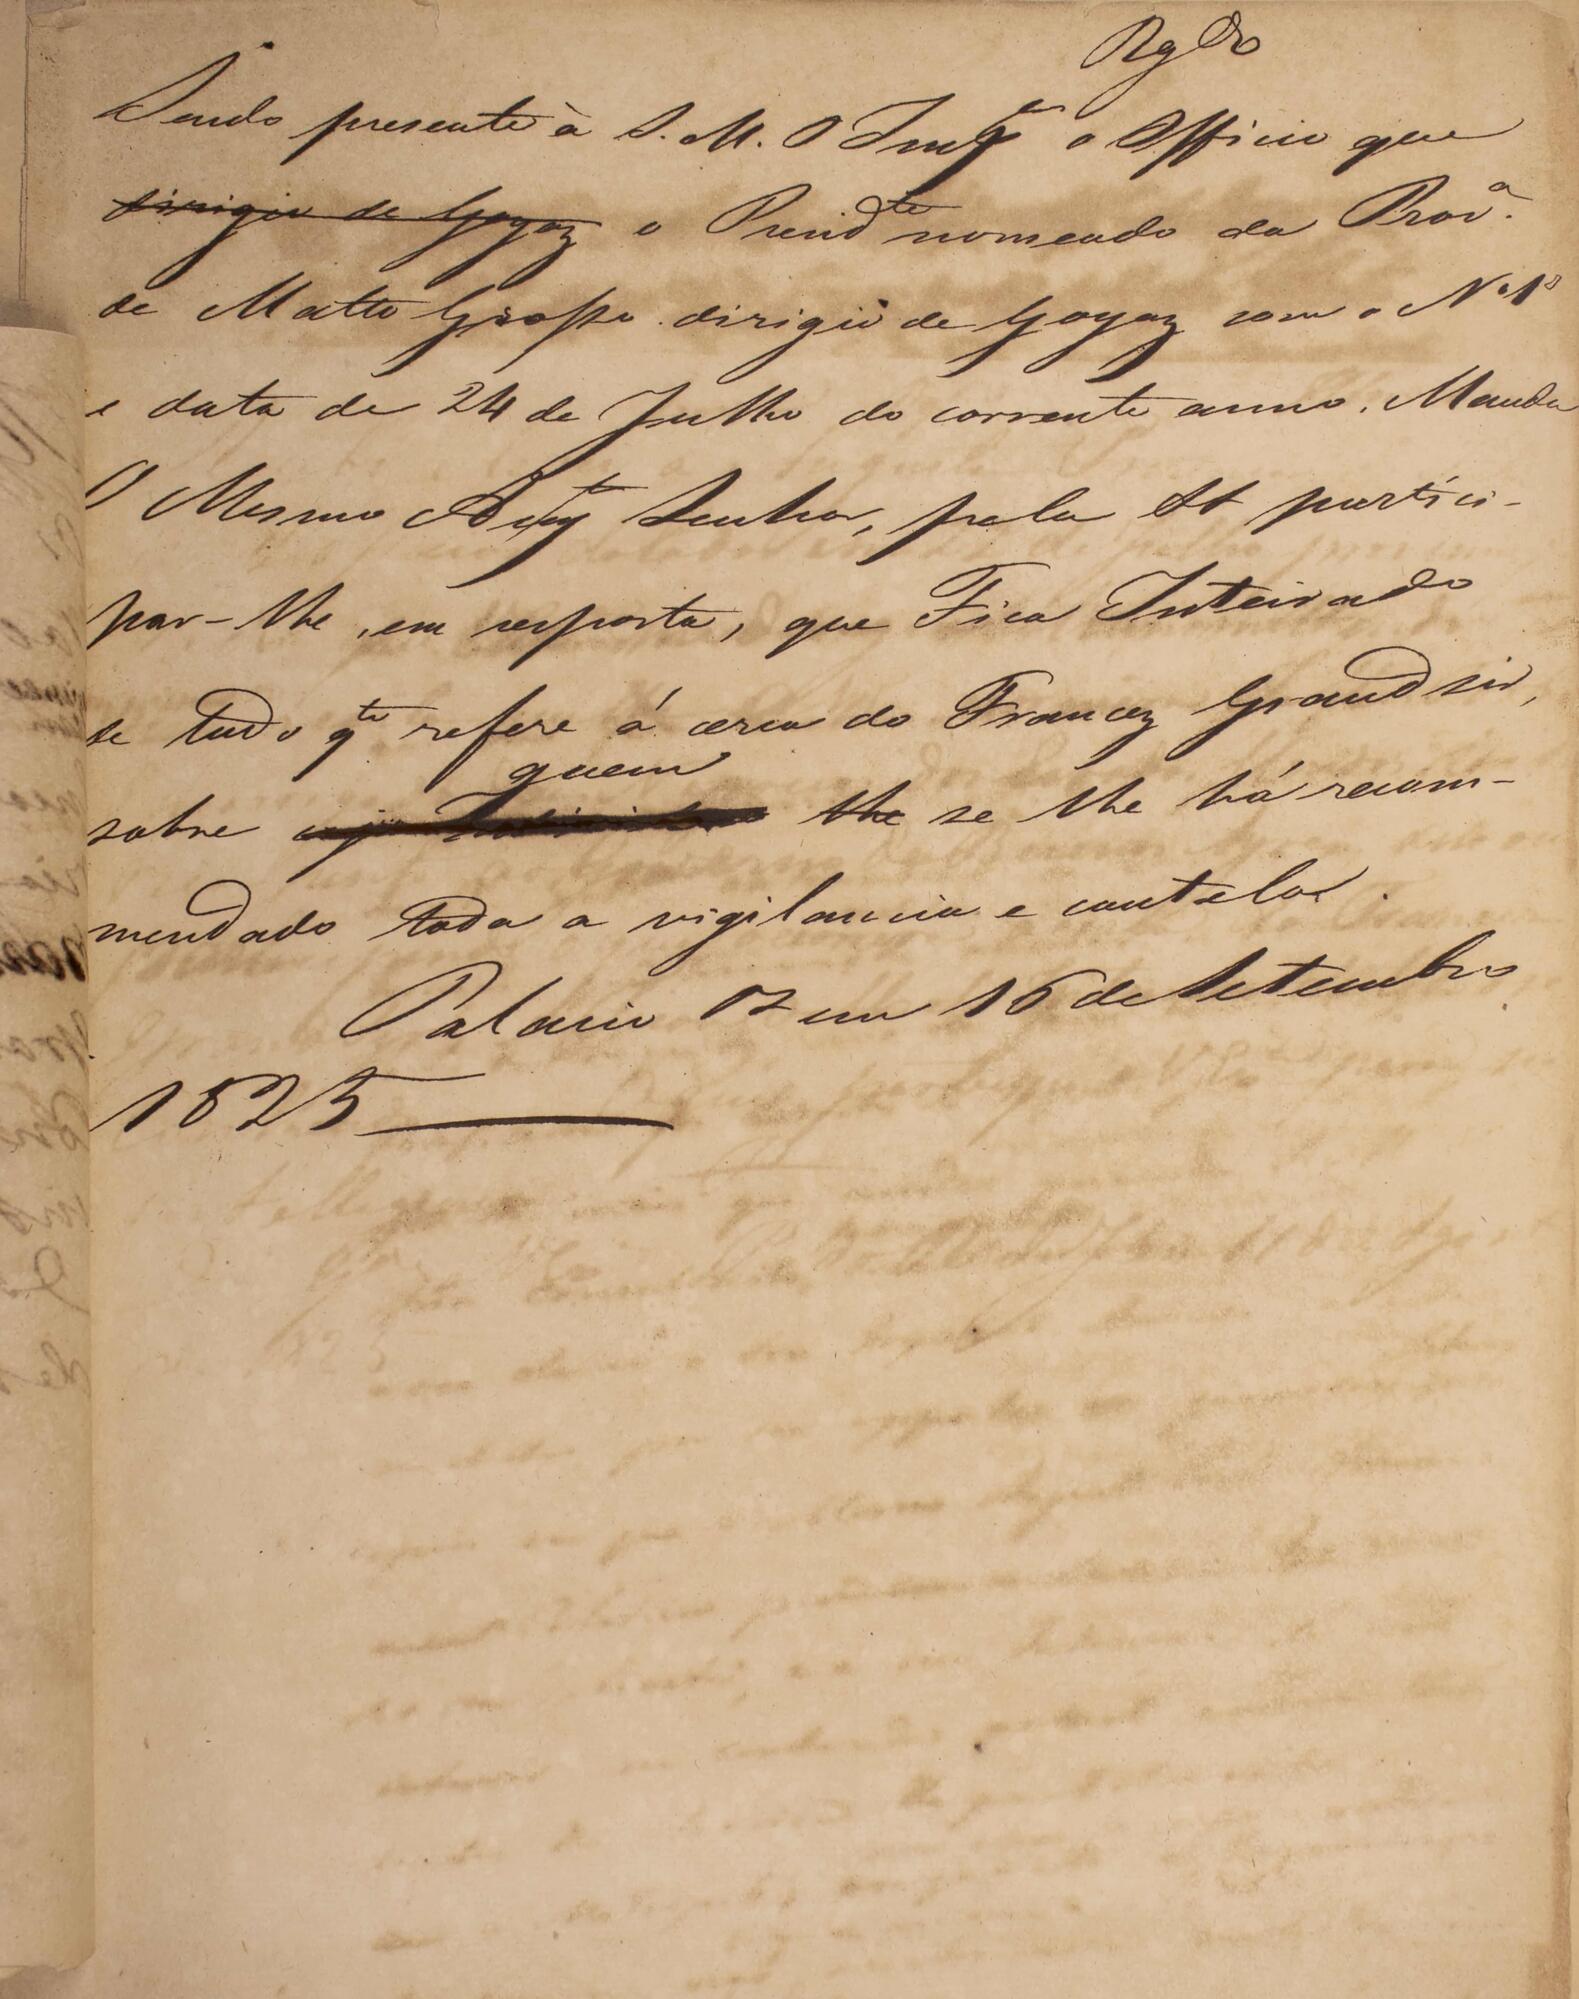 Rgdo
Sendo presente à S. M. O Impor o Officio que
dirigiu de Goyaz o Presidte nomeado da Prova.
de Matto Grosso dirigiu de Goyaz com o No 1o
e data de 24 de Julho do corrente anno. Manda
O Mesmo Augto Senhor, pela St partici-
par-lhe, em resposta, que Fica Inteirado
de tudo qto refere á cerca do Francez Grandsir,
quem
sobre cujo lhe se lhe há recom-
mendado toda a vigilancia e cautela.
Palacio em 16 de Setembro
1825